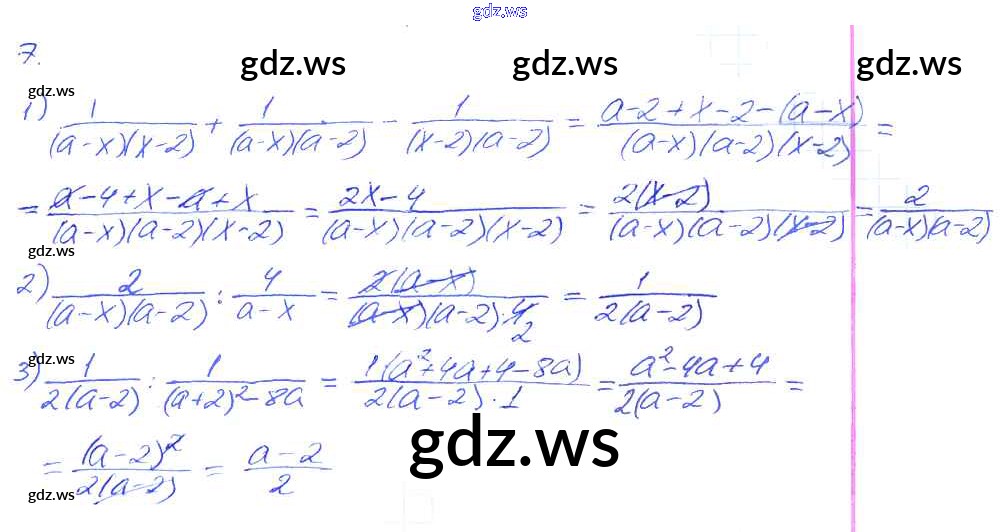 gdz.ws
7.
gdz.ws gdz.ws gdz.ws
gdz.ws
1) 1/((a-x)(x-2)) + 1/((a-x)(a-2)) - 1/((x-2)(a-2)) = (a-2+x-2-(a-x))/((a-x)(a-2)(x-2)) =
= (a-4+x-a+x)/((a-x)(a-2)(x-2)) = (2x-4)/((a-x)(a-2)(x-2)) = (2(x-2))/((a-x)(a-2)(x-2)) = 2/((a-x)(a-2))
gdz.ws
2) 2/((a-x)(a-2)) : 4/(a-x) = (2(a-x))/((a-x)(a-2)·4 2) = 1/(2(a-2))
gdz.ws
3) 1/(2(a-2)) : 1/((a+2)²-8a) = (1(a²+4a+4-8a))/(2(a-2)·1) = (a²-4a+4)/(2(a-2)) =
gdz.ws
= (a-2)²/(2(a-2)) = (a-2)/2
gdz.ws